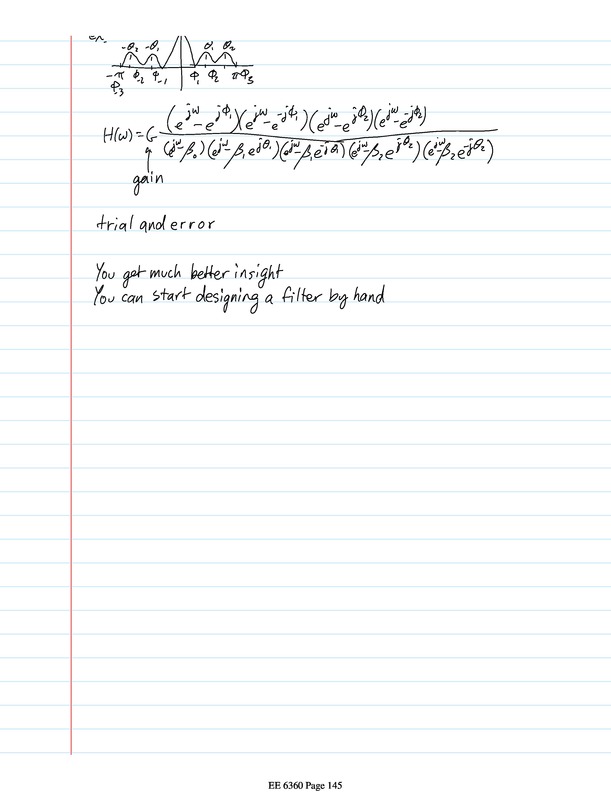 ex.
-θ₂ -θ₁ θ₁ θ₂
-π Φ₋₂ Φ₋₁ Φ₁ Φ₂ π Φ₃
Φ₋₃
H(ω) = G (e^{jω} - e^{jΦ₁})(e^{jω} - e^{-jΦ₁})(e^{jω} - e^{jΦ₂})(e^{jω} - e^{-jΦ₂}) / (e^{jω} - β₀)(e^{jω} - β₁e^{jθ₁})(e^{jω} - β₁e^{-jθ₁})(e^{jω} - β₂e^{jθ₂})(e^{jω} - β₂e^{-jθ₂})
gain
trial and error
You get much better insight
You can start designing a filter by hand
EE 6360 Page 145